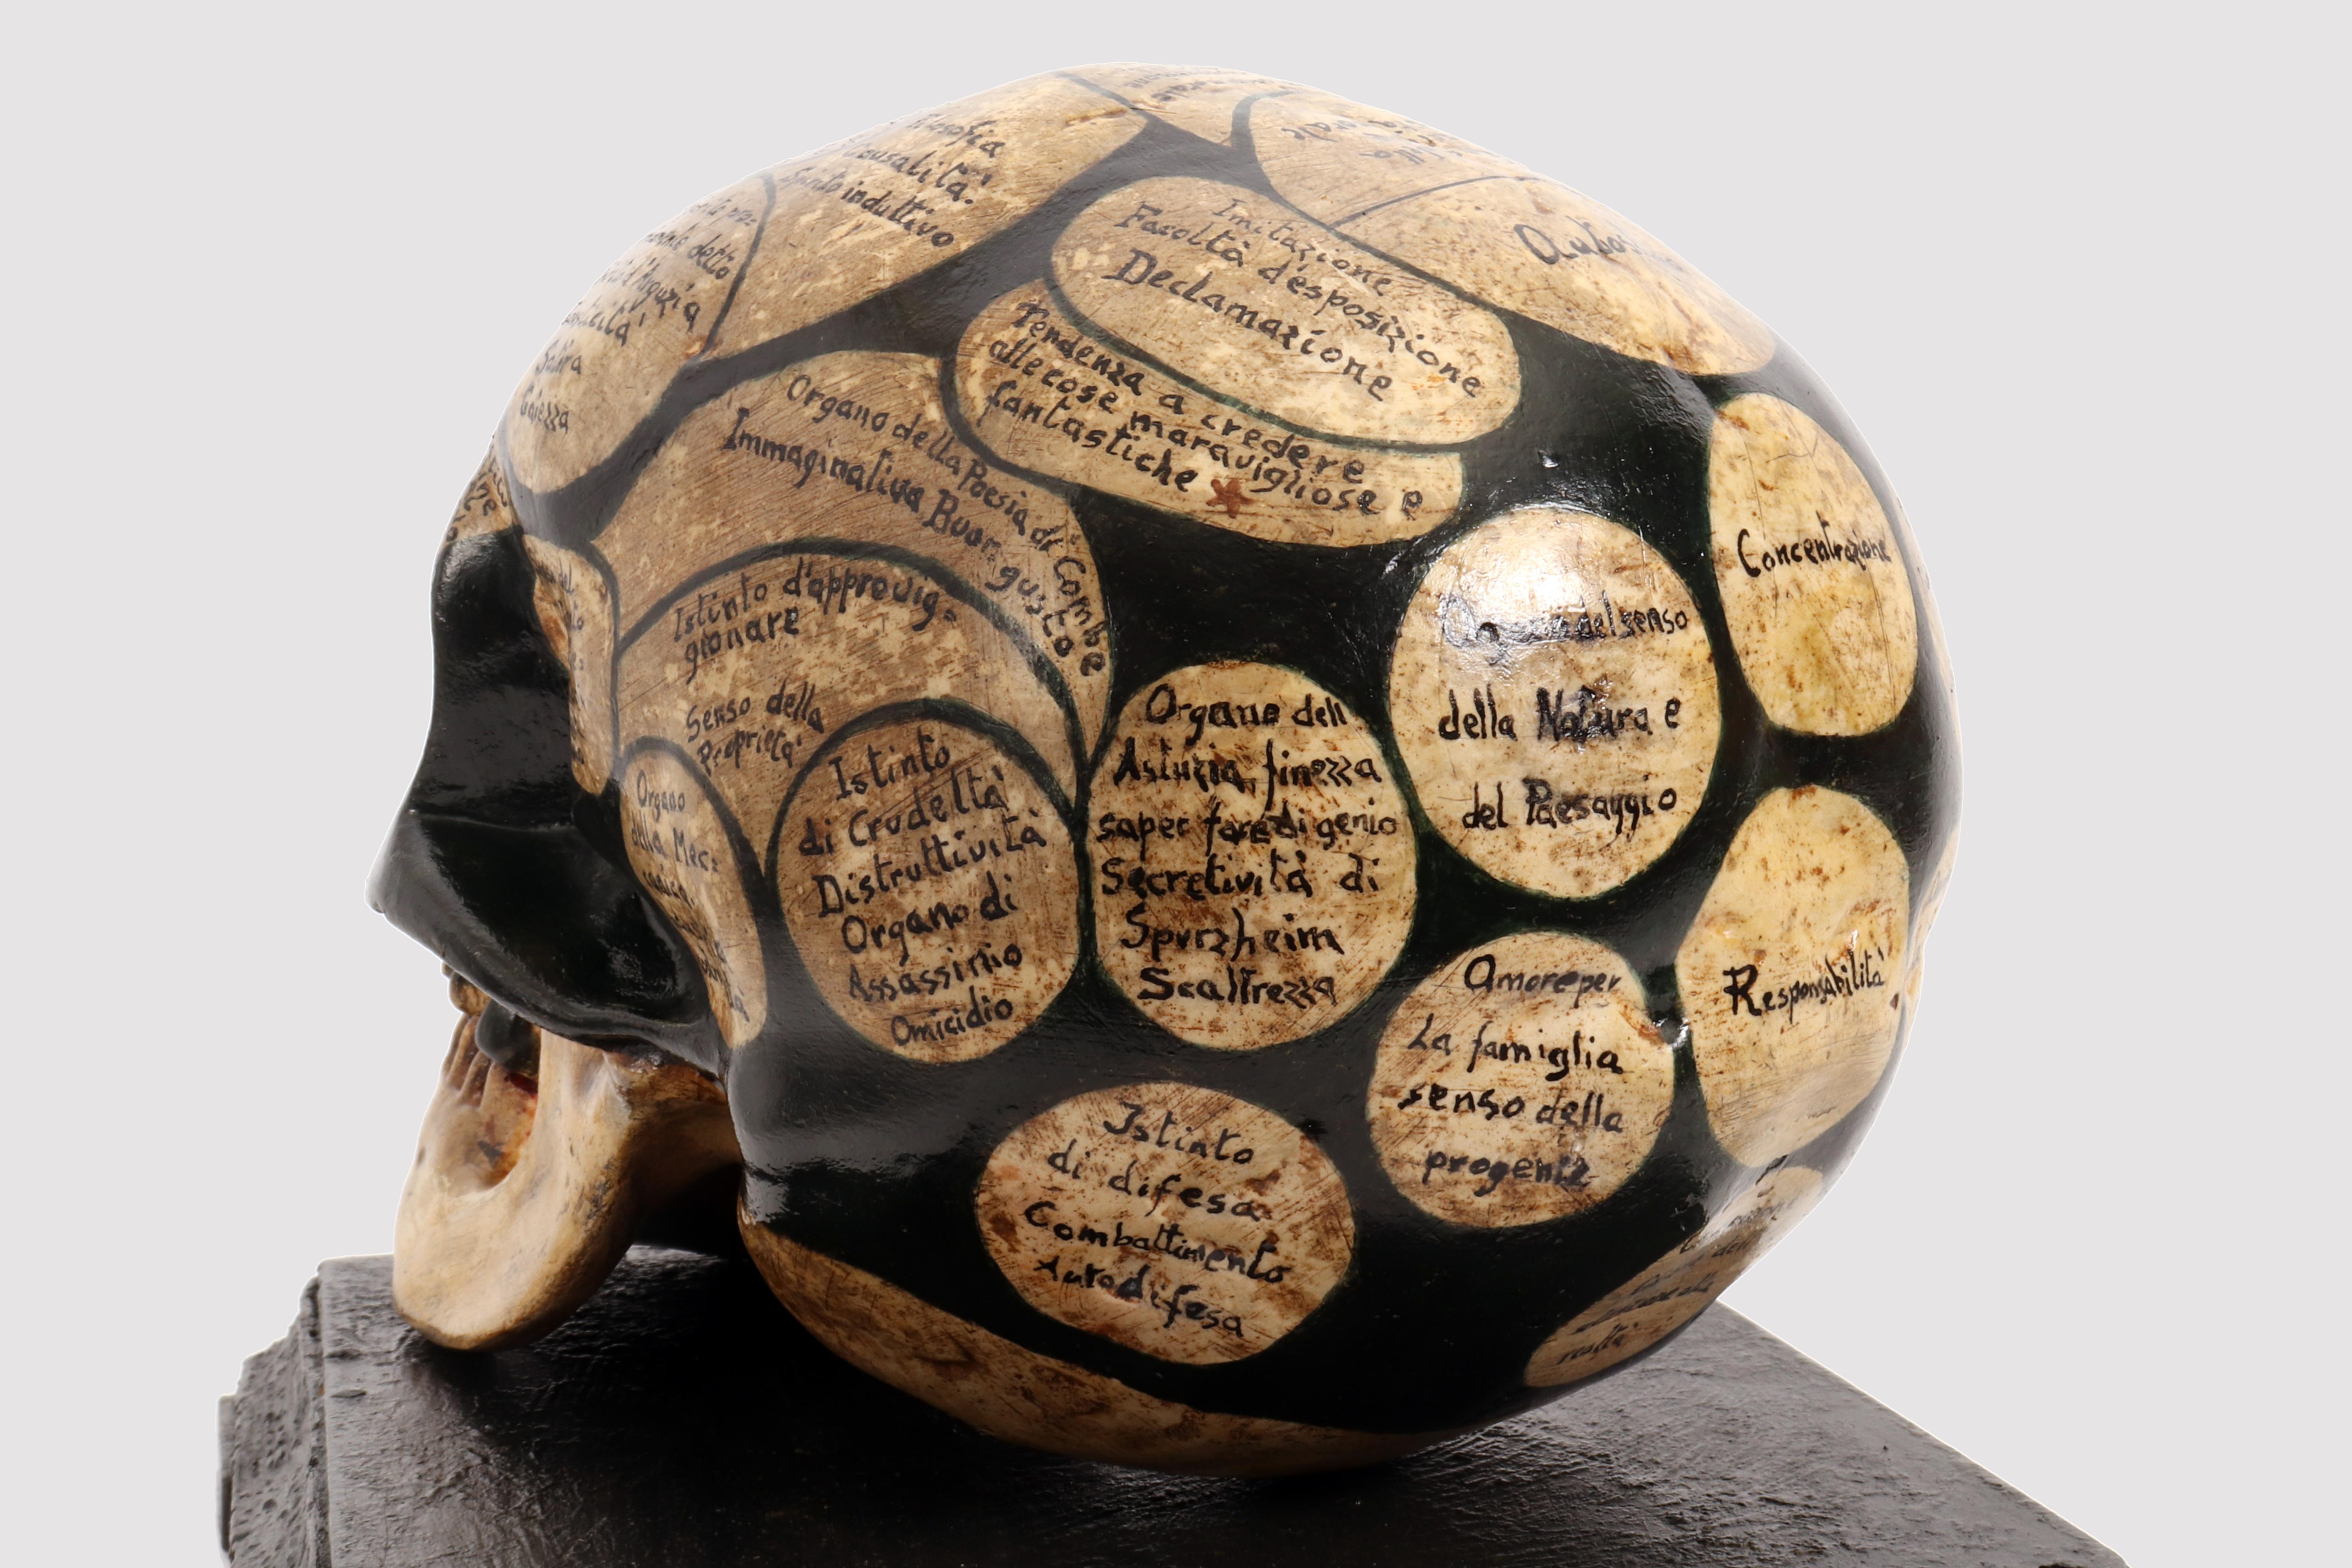 Filosofia
Causalità
Santo induttivo
detto
d'Arguzia
Satira
Gaiezza
Imitazione
Facoltà d'esposizione
Declamazione
Tendenza a credere
alle cose maravigliose e
fantastiche
Organo della Poesia di Combe
Immaginativa Buon gusto
Istinto d'approvig=
gionare
Senso della
Proprietà
Organo
della Mec=
Istinto
di Crudeltà
Distruttività
Organo di
Assassinio
Omicidio
Organo dell
Astuzia, finezza
saper fare di genio
Secretività di
Spurzheim
Scaltrezza
Organo del senso
della Natura e
del Paesaggio
Concentrazione
Responsabilità
Amore per
La famiglia
senso della
progenie
Istinto
di difesa
Combattimento
Autodifesa